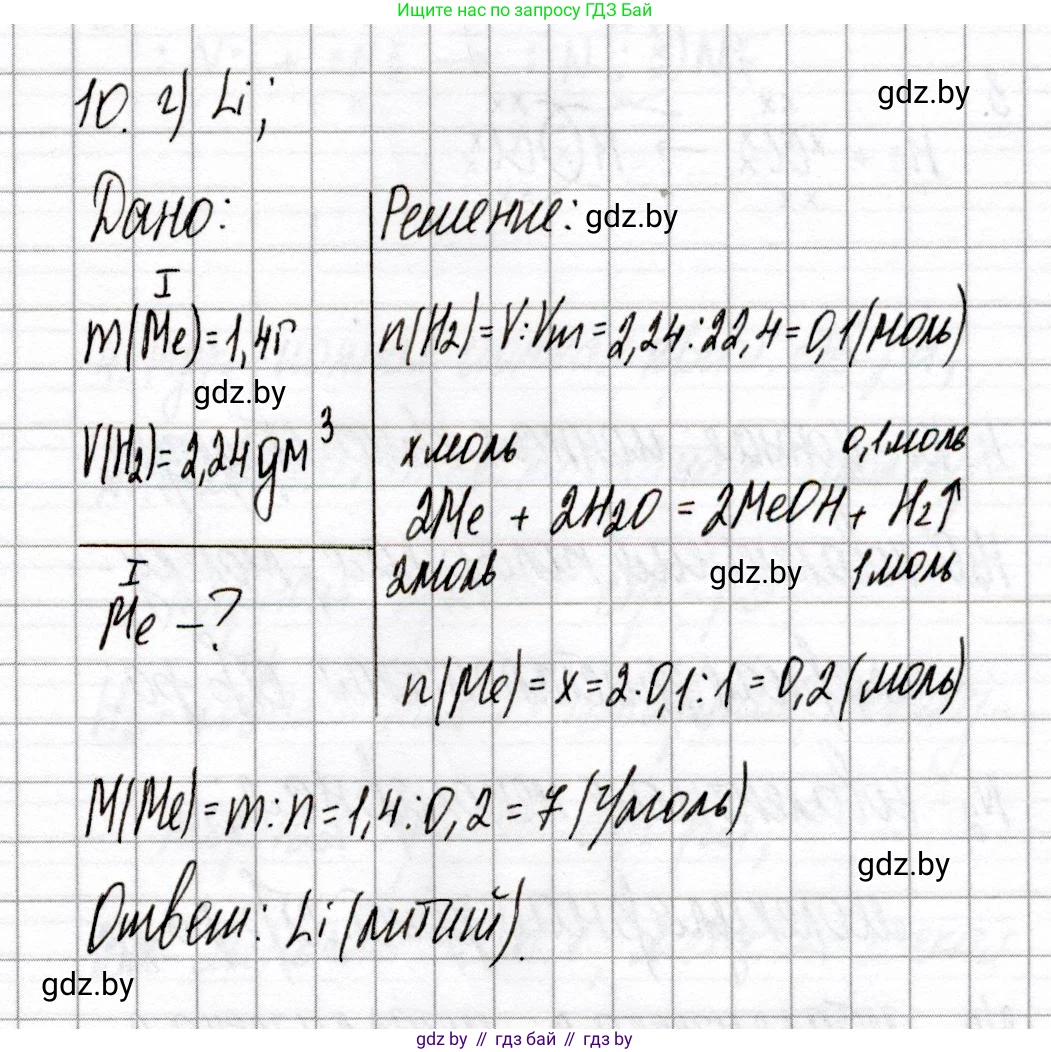 Ищите нас по запросу ГДЗ Бай
10. г) Li;
gdz.by
Дано:
I
m(Me)=1,4г
gdz.by
V(H₂)=2,24дм³
I
Me – ?
Решение: gdz.by
n(H₂)=V:Vm=2,24:22,4=0,1(моль)
x моль 0,1моль
2Me + 2H₂O = 2MeOH + H₂↑
2моль gdz.by 1моль
n(Me)=x=2·0,1:1=0,2(моль)
M(Me)=m:n=1,4:0,2=7(г/моль)
gdz.by
Ответ: Li(литий).
gdz.by
gdz.by // гдз бай // gdz.by